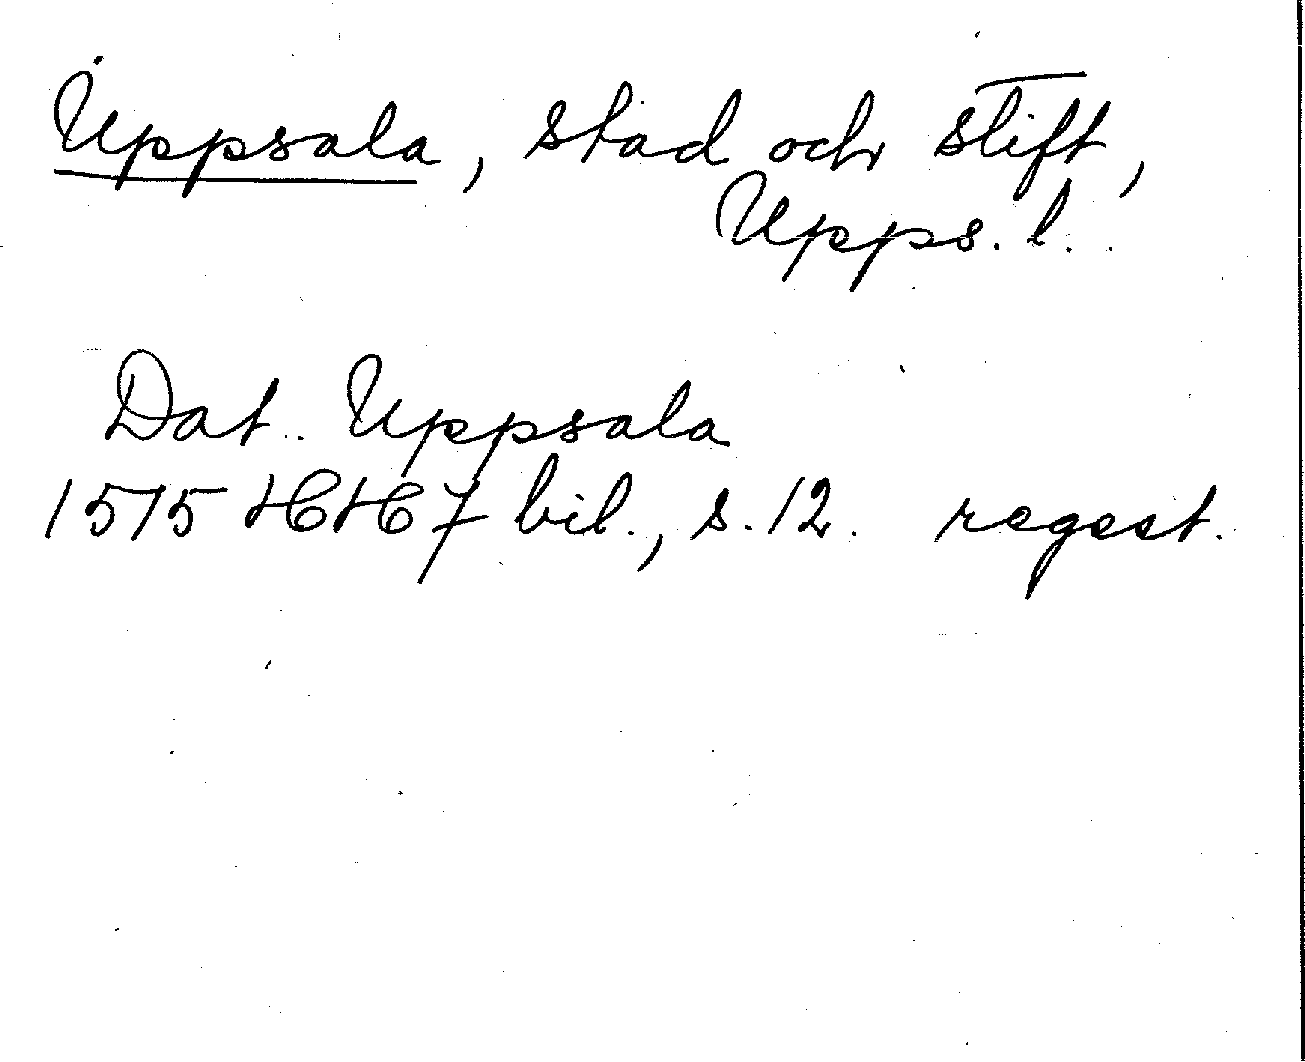 Uppsala, stad och stift,
Upps. l.
Dat. Uppsala
1575 HH 7 bil., s. 12. regest.